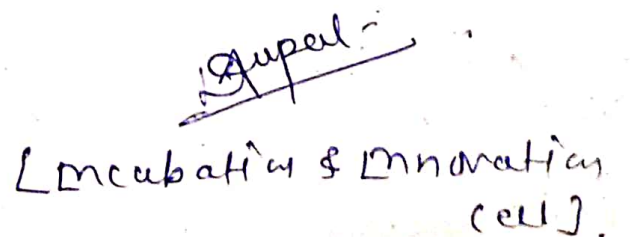 [Incubation & Innovation
Cell].